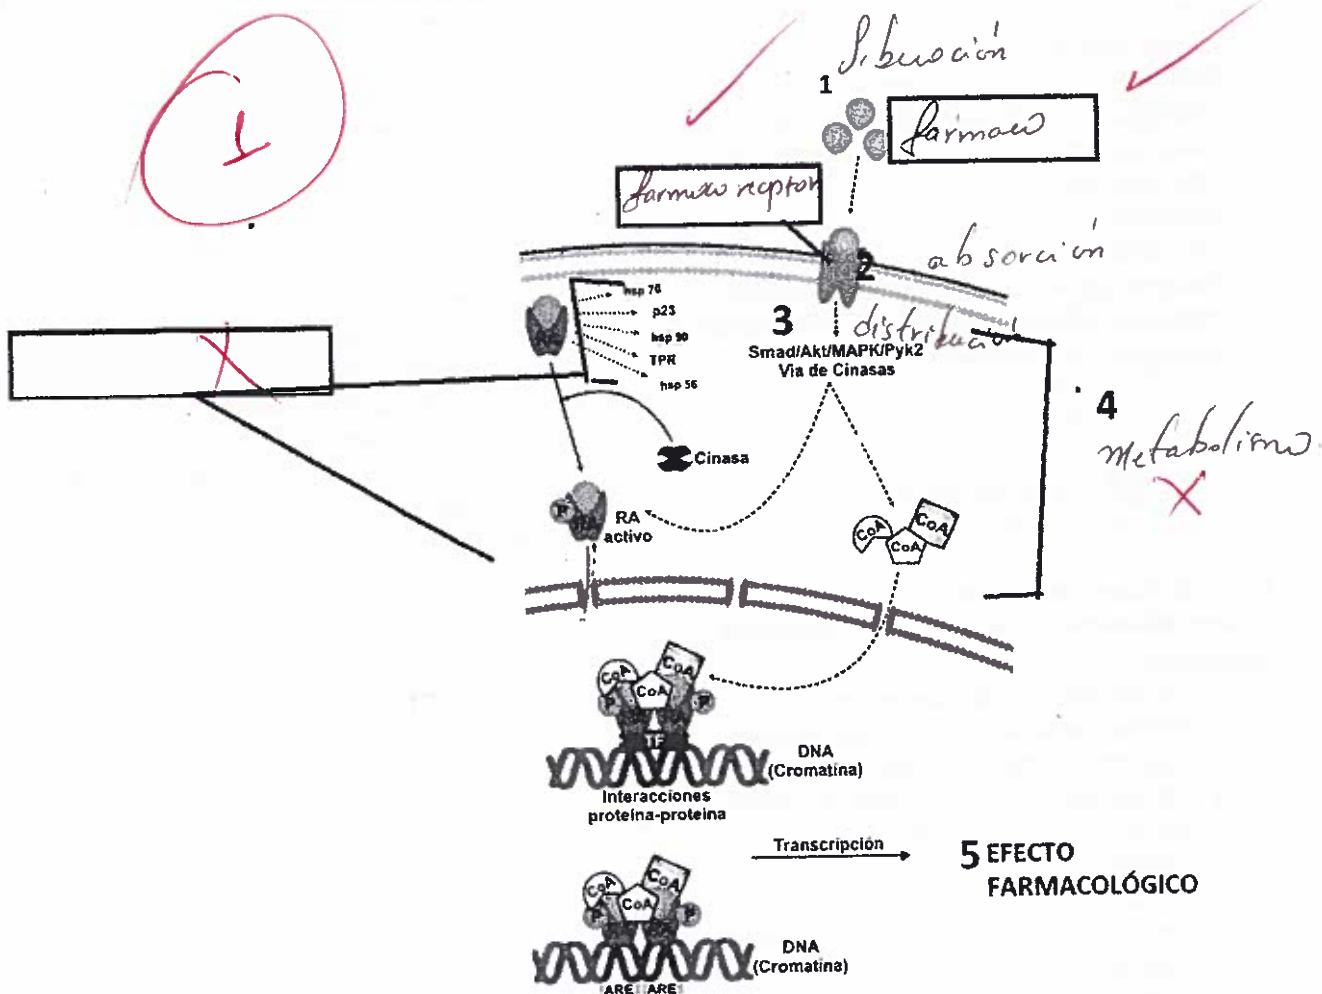 1
Liberación
1
farmaco
farmaco receptor
2
absorción
hsp 70
p23
hsp 90
TPR
hsp 56
3
distribución
Smad/Akt/MAPK/Pyk2
Via de Cinasas
4
metabolismo
X
X
Cinasa
P
RA
activo
CoA
CoA
CoA
CoA
CoA
CoA
P
P
TF
DNA
(Cromatina)
Interacciones
proteína-proteína
Transcripción
5 EFECTO
FARMACOLÓGICO
CoA
CoA
CoA
P
P
DNA
(Cromatina)
ARE ARE